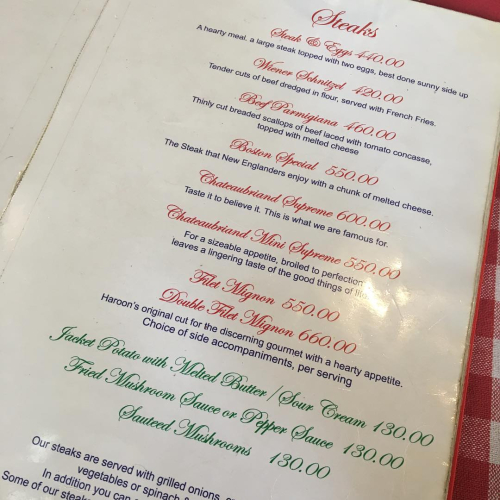 Steaks
Steak & Eggs 440.00
A hearty meal, a large steak topped with two eggs, best done sunny side up
Wiener Schnitzel 420.00
Tender cuts of beef dredged in flour, served with French Fries.
Beef Parmigiana 460.00
Thinly cut breaded scallops of beef laced with tomato concasse,
topped with melted cheese
Boston Special 550.00
The Steak that New Englanders enjoy with a chunk of melted cheese.
Chateaubriand Supreme 600.00
Taste it to believe it. This is what we are famous for.
Chateaubriand Mini Supreme 550.00
For a sizeable appetite, broiled to perfection
leaves a lingering taste of the good things of life
Filet Mignon 550.00
Double Filet Mignon 660.00
Haroon's original cut for the discerning gourmet with a hearty appetite.
Choice of side accompaniments, per serving
Jacket Potato with Melted Butter / Sour Cream 130.00
Fried Mushroom Sauce or Pepper Sauce 130.00
Sauteed Mushrooms 130.00
Our steaks are served with grilled onions,
vegetables or spinach
In addition you can
Some of our steaks